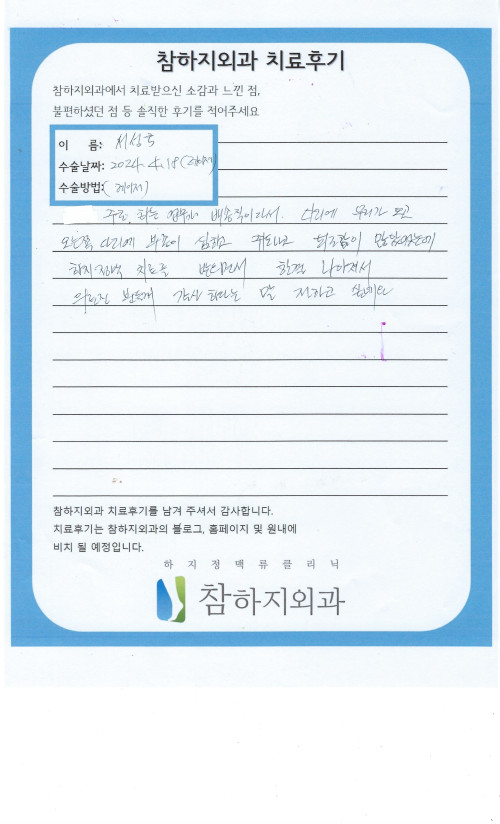 참하지외과 치료후기
참하지외과에서 치료받으신 소감과 느낀 점,
불편하셨던 점 등 솔직한 후기를 적어주세요
이 름:
수술날짜: 2024. 4. 18
수술방법: (레이저)
주로 하는 업무가 배송직이라서. 다리에 무리가 오고
오른쪽 다리에 부종이 심하고 쥐도나고 불편함이 많았었는데
하지정맥 치료를 받으면서 한결 나아져서
의료진 분들께 감사 하다는 말 전하고 싶네요
참하지외과 치료후기를 남겨 주셔서 감사합니다.
치료후기는 참하지외과의 블로그, 홈페이지 및 원내에
비치 될 예정입니다.
하지정맥류클리닉
참하지외과